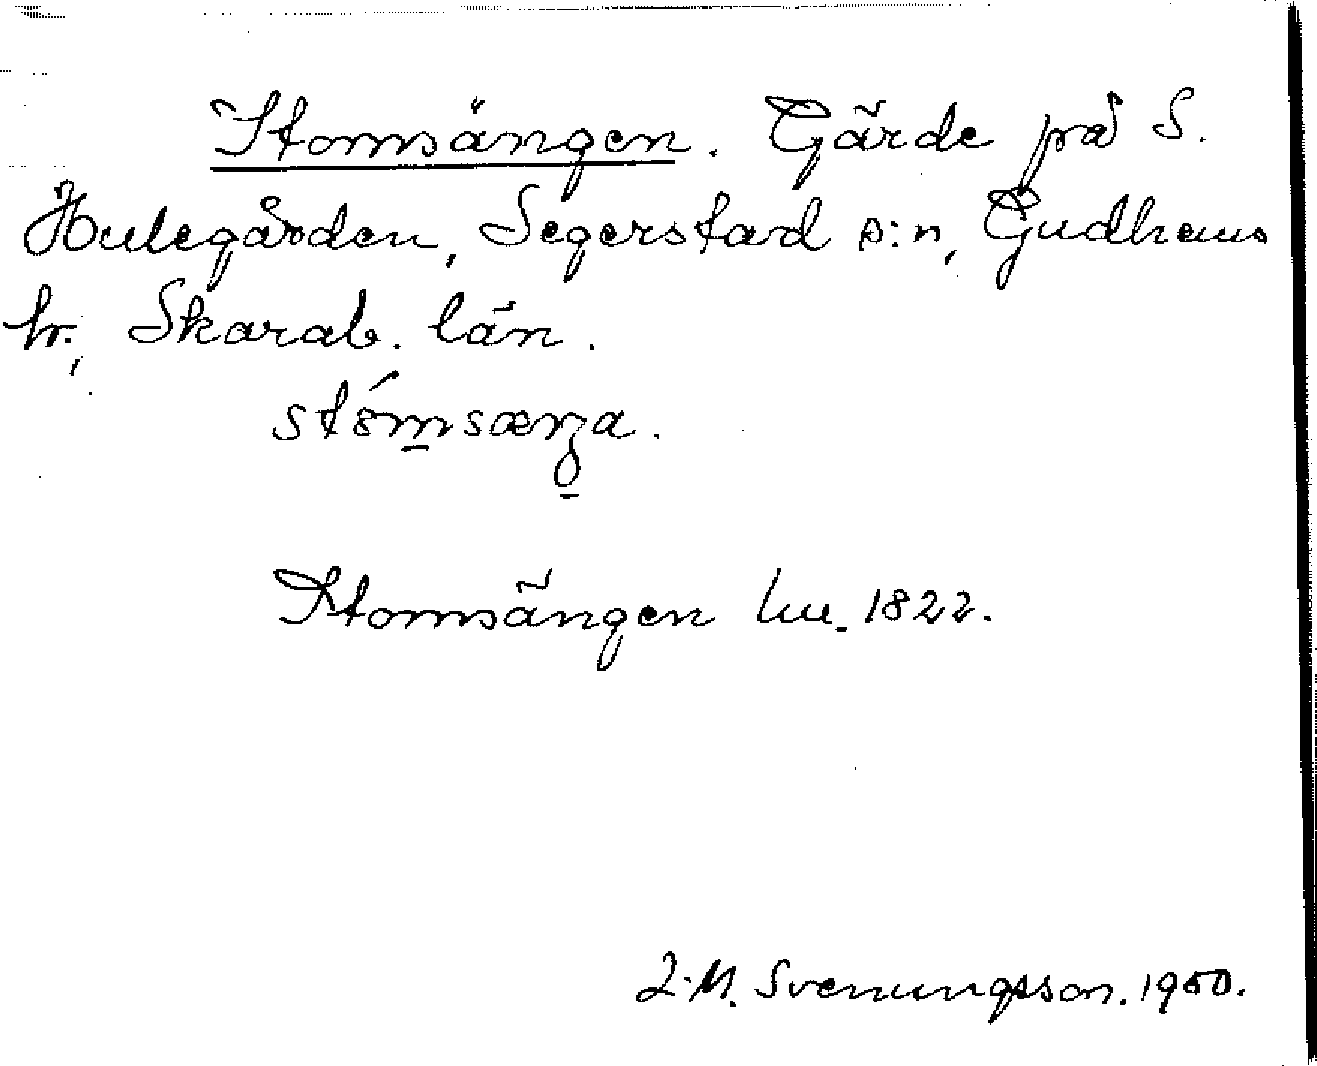 Stomsängen. Gärde på S.
Hulegården, Segerstad s:n, Gudhems
hr, Skarab. län.
Stomsängen hu. 1822.
I. M. Svenungsson. 1950.